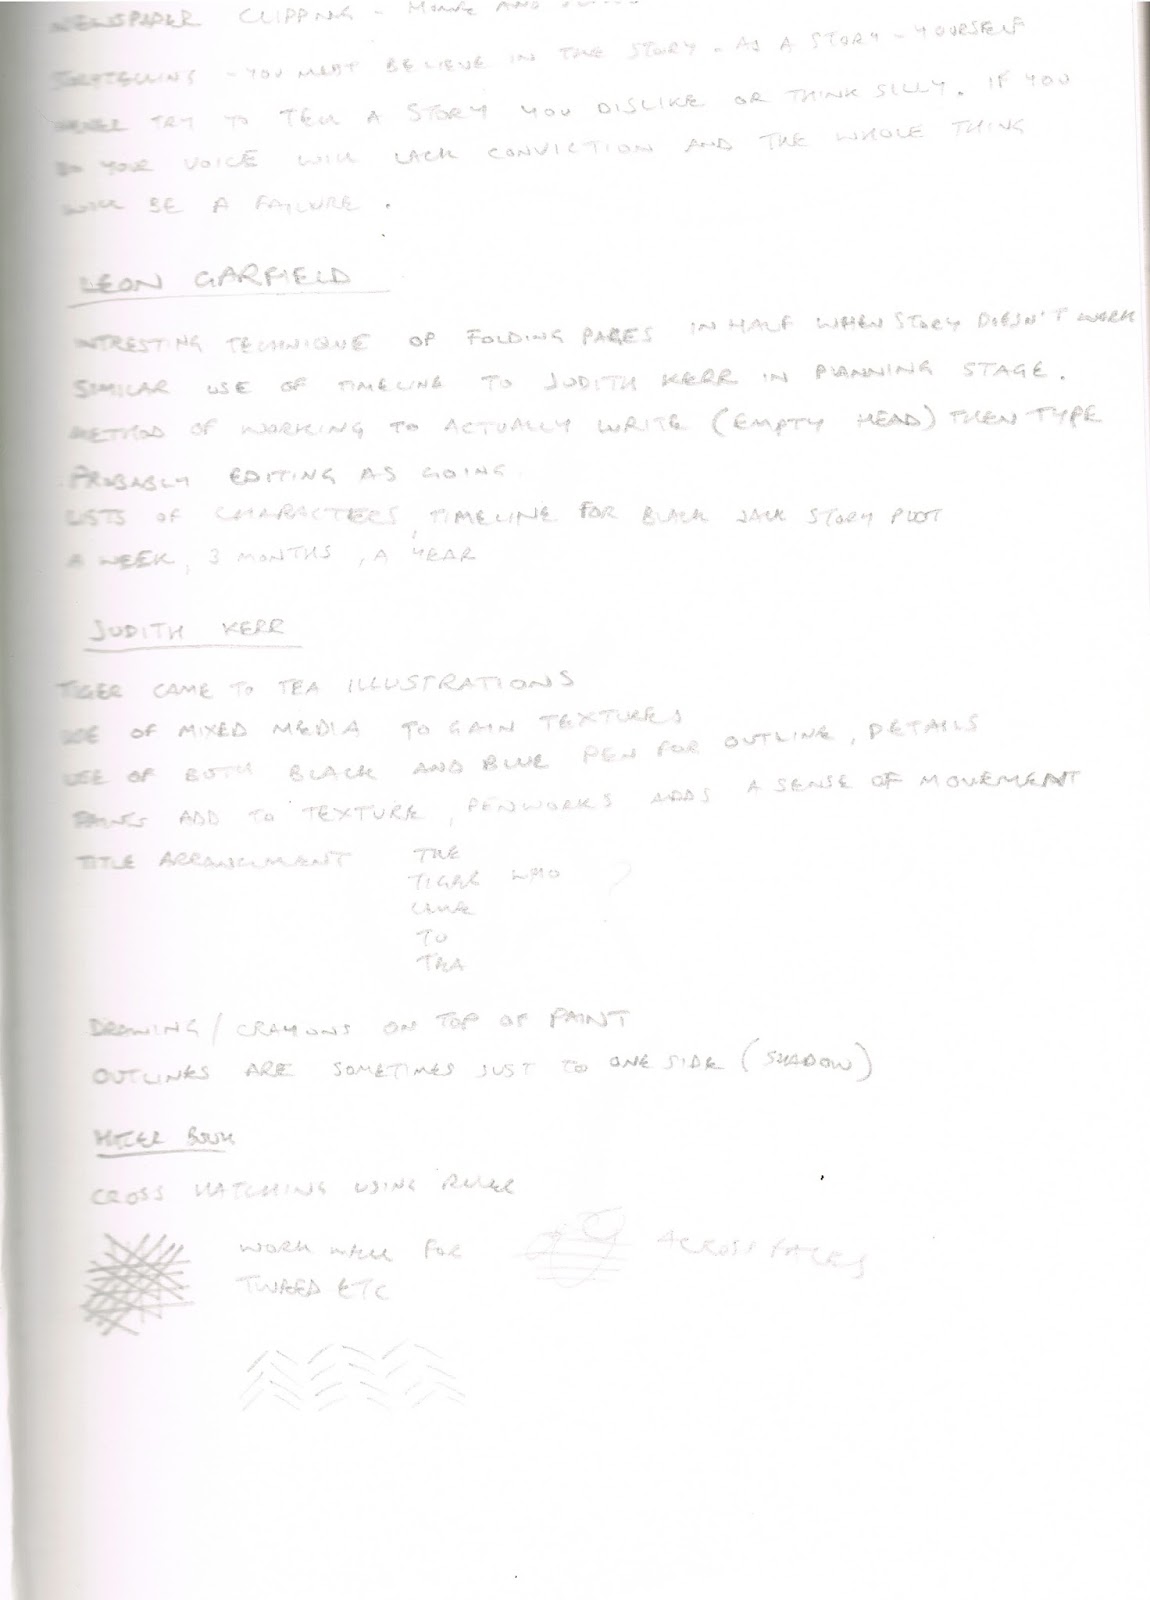 NEWSPAPER CLIPPING - MOUSE AND
STORYTELLING - YOU MUST BELIEVE IN THE STORY - AS A STORY - YOURSELF
NEVER TRY TO TELL A STORY YOU DISLIKE OR THINK SILLY. IF YOU
DO YOUR VOICE WILL LACK CONVICTION AND THE WHOLE THING
WILL BE A FAILURE.
LEON GARFIELD
INTRESTING TECHNIQUE OF FOLDING PAGES IN HALF WHEN STORY DOESN'T WORK
SIMILAR USE OF TIMELINE TO JUDITH KERR IN PLANNING STAGE.
METHOD OF WORKING TO ACTUALLY WRITE (EMPTY HEAD) THEN TYPE
PROBABLY EDITING AS GOING
LISTS OF CHARACTERS, TIMELINE FOR BLACK JACK STORY PLOT
A WEEK, 3 MONTHS, A YEAR
JUDITH KERR
TIGER CAME TO TEA ILLUSTRATIONS
USE OF MIXED MEDIA TO GAIN TEXTURES
USE OF BOTH BLACK AND BLUE PEN FOR OUTLINE, DETAILS
PAINTS ADD TO TEXTURE, PENWORKS ADDS A SENSE OF MOVEMENT
TITLE ARRANGMENT THE
TIGER WHO ?
CAME
TO
TEA
DRAWING/CRAYONS ON TOP OF PAINT
OUTLINES ARE SOMETIMES JUST TO ONE SIDE (SHADOW)
HITLER BOOK
CROSS HATCHING USING RULER
WORK WELL FOR ACROSS FACES
TWEED ETC